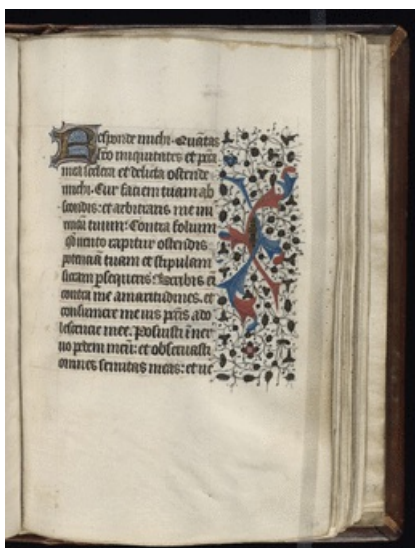 Responde michi. Quãtas
h̃eo iniquitates et pctã
mea scelera et delicta ostende
michi. Cur faciem tuam ab
scondis: et arbitraris me ini
micũ tuum. Contra folium
quod uento rapitur ostendis
potenciã tuam et stipulam
siccam psequeris. Scribis eñ
contra me amaritudines. et
consumere me uis pctis ado
lescencie mee. Posuisti ĩ ner
uo pedem meũ: et obseruasti
omnes semitas meas: et ue